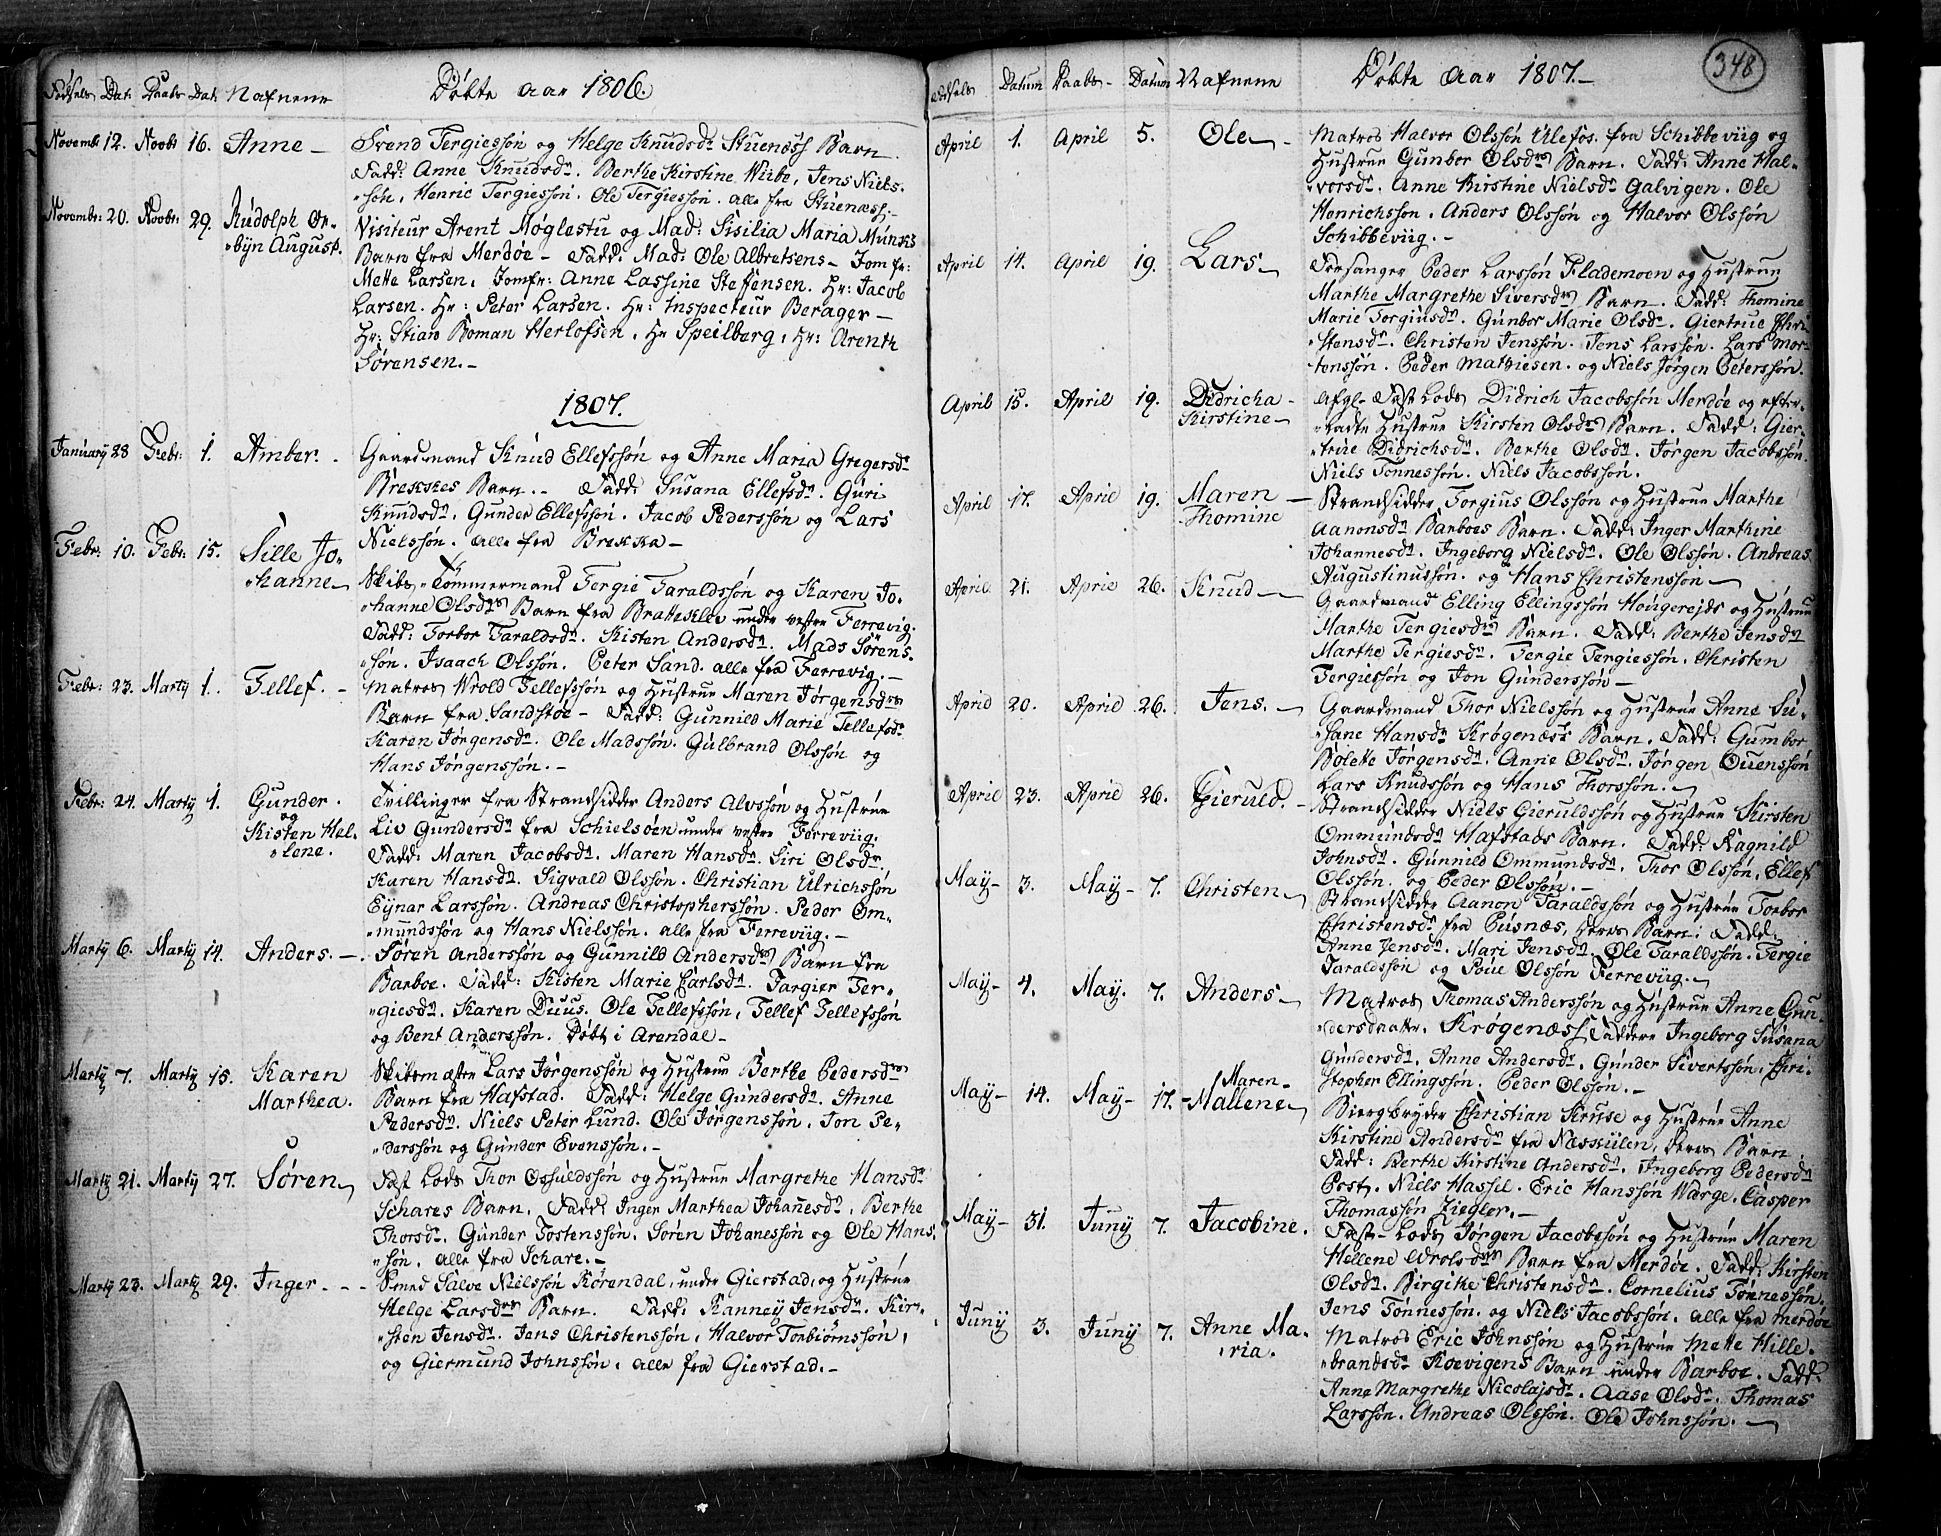 Fødsels Dat: Daabs Dat: Nafnene Døbte aar 1806.
Novembr 12. Novbr 16. Anne - Svend Tergiessøn og Helge Knudsdr Stuenæss Barn.
Fadd: Anne Knudsdr. Berthe Kirstine Wibe, Jens Niels-
søn, Henric Tergiessøn. Ole Tergiessøn. alle fra Stuenæss.-
Novembr: 20. Novbr: 29. Rudolph Or-
byn August. Visiteur Arent Møglestu og Mad: Sisilia Maria Munchs
Barn fra Merdøe - Fadd: Mad: Ole Albretsens - Jomfr:
Mette Larsen, Jomfr: Anne Lassine Steffensen. Hr: Jacob
Larsen. Hr: Peter Larsen. Hr: Inspecteur Berager -
Hr: Stian Boman Herlofsen, Hr Speilberg, Hr: Arenth
Sørensen.-
1807.
January 28 Febr: 1. Amber. Gaardmand Knud Ellefssøn og Anne Maria Gregersdr
Brekkes Barn.- Fadd: Susana Ellefsdr. Guri
Knudsdr. Gunder Ellefssøn. Jacob Pederssøn og Lars
Nielssøn. alle fra Brekka -
Febr: 10. Febr: 15. Sille Jo-
hanne Skibs-Tømmermand Tergie Taraldssøn og Karen Jo-
hanne Olsdrs Barn fra Bratteklev under vestre Ferrevig.
Fadd: Torbor Taraldsdr. Kisten Andersdr. Mads Sørens-
søn. Isaach Olssøn. Peter Sand. alle fra Ferrevig.-
Febr: 23. Marty 1. Tellef. - Matros Wrold Tellefssøn og Hustrue Maren Jørgensdrs
Barn fra Sandstøe - Fadd: Gunnild Marie Tellefsdr
Karen Jørgensdr. Ole Madssøn. Gulbrand Olssøn og
Hans Jørgenssøn.-
Febr: 24. Marty 1. Gunder.
og
Kisten Hel-
lene. Tvillinger fra Strandsidder Anders Alvssøn og Hustrue
Liv Gundersdr fra Schielsøen under vestre Ferreviig.
Fadd: Maren Jacobsdr. Maren Hansdr. Siri Olsdr.
Karen Hansdr. Sigvald Olssøn. Christian Ulrichssøn
Eynar Larssøn. Andreas Christopherssøn. Peder Om-
mundssøn og Hans Nielssøn. alle fra Ferreviig.-
Marty 6. Marty 14. Anders.- Søren Anderssøn og Gunnild Andersdrs Barn fra
Barboe. Fadd: Kisten Marie Carlsdr. Targier Ter-
giesdr. Karen Duus. Ole Tellefssøn, Tellef Tellefssøn
og Bent Anderssøn. Døbt i Arendal -
Marty 7. Marty 15. Karen
Marthea. Skibsmæster Lars Jørgenssøn og Hustrue Berthe Pedersdrs
Barn fra Hafstad. Fadd: Helge Gundersdr. Anne
Pedersdr. Niels Peter Lund. Ole Jørgenssøn. Jon Pe-
derssøn og Gunder Evenssøn.-
Marty 21. Marty 27. Søren Fast Lods Thor Ossuldssøn og Hustrue Margrethe Hansdr
Schares Barn. Fadd: Inger Marthea Johanesdr, Berthe
Thorsdr. Gunder Tostenssøn. Søren Johanessøn og Ole Hans-
søn. alle fra Schare.-
Marty 23. Marty 29. Inger. - - Smed Salve Nielssøn Rørendal, under Gierstad, og Hustrue
Helge Larsdrs Barn. Fadd: Ranney Jensdr. Kir-
sten Jensdr. Jens Christenssøn, Halvor Torbiørnssøn,
og Giermund Johnssøn, alle fra Gierstad.-
348
Fødsels Datum Daabs- Datum Nafnene Døbte aar 1807.-
April 1. April 5. Ole Matros Halvor Olssøn Ulefos. fra Schibbeviig og
Hustrue Gunbor Olsdrs Barn. Fadd: Anne Hal-
vorsdr. Anne Kirstine Nielsdr Galvigen. Ole
Henrichssøn. Anders Olssøn og Halvor Olssøn
Schibbeviig.-
April 14. April 19. Lars Forsanger Peder Larssøn Flademoen og Hustrue
Marthe Margrethe Siversdrs Barn. Fadd: Thomine
Marie Torgiusdr. Gunbor Marie Olsdr. Giertrue Chri-
stensdr. Christen Jenssøn. Jens Larssøn. Lars Mor-
tenssøn. Peder Mathiesen. og Niels Jørgen Peterssøn.
April 15. April 19. Didricha
Kirstine Afgl- Fast Lods Didrich Jacobssøn Merdøe og efter-
ladte Hustrue Kirsten Olsdrs Barn. Fadd: Gier-
true Didrichsdr. Berthe Olsdr. Jørgen Jacobssøn.
Niels Tønnessøn. Niels Jacobssøn.
April 17. April 19. Maren
Thomine Strandsidder Torgius Olssøn og Hustrue Marthe
Aanonsdr Barboes Barn. Fadd: Inger Marthine
Johannesdr. Ingeborg Nielsdr. Ole Olssøn. Andreas
Augustinussøn. og Hans Christenssøn
April 21. April 26. Knud Gaardmand Elling Ellingssøn Hougerejds og Hustrue
Marthe Tergiesdrs Barn. Fadd: Berthe Jensdr
Marthe Tergiesdr. Tergie Tergiessøn. Christen
Tergiessøn og Jon Gunderssøn -
April 20. April 26. Jens. Gaardmand Thor Nielssøn og Hustrue Anne Su-
sane Hansdr Krøgenæss Barn. Fadd: Gumbor
Bolette Jørgensdr. Anne Olsdr. Jørgen Ouenssøn
Lars Knudssøn og Hans Thorssøn.
April 23. April 26. Gieruld. Strandsidder Niels Gieruldssøn og Hustrue Kirsten
Ommundsdr Hafstads Barn. Fadd: Ragnild
Johnsdr. Gunnild Ommundsdr. Thor Olssøn. Ellef
Olssøn. og Peder Olssøn.-
May 3. May 7. Christen Strandsidder Aanon Taraldssøn og Hustrue Torbor
Christensdr fra Pusnæs, deres Barn: Fadd:
Anne Jensdr. Mari Jensdr. Ole Taraldssøn. Tergie
Taraldssøn og Poue Olssøn Ferreviig.
May 4. May. 7. Anders Matros Thomas Anderssøn og Hustrue Anne Gun-
dersdaatter. Krøgenæss Faddere Ingeborg Susana
Gundersdr. Anne Andersdr. Gunder Sivertssøn. Chri-
stopher Ellingssøn. Peder Olssøn.-
May 14. May 17. Maren
Mallene Biergbryder Christian Kruse og Hustrue Anne
Kirstine Andersdr fra Næsskilen, deres Barn
Fadd: Berthe Kirstine Andersdr. Ingeborg Pedersdr
Post. Niels Hassil. Eric Hanssøn Warge. Casper
Thomassøn Ziegler.-
May 31. Juny 7. Jacobine. Fast-Lods Jørgen Jacobssøn og Hustrue Maren
Hellene Wrolsdrs Barn fra Merdøe. Fadd: Kirsten
Olsdr. Birgitte Christensdr. Cornelius Tønnessøn.
Jens Tønnessøn. og Niels Jacobssøn. alle fra Merdøe
Juny 3. Juny 7. Anne Ma-
ria. Matros Eric Johnssøn og Hustrue Mette Hille-
brandsdr Koevigens Barn under Barboe. Fadd:
Anne Margrethe Nicolajsdr. Aase Olsdr. Thomas
Larssøn. Andreas Olssøn. Ole Johnssøn.